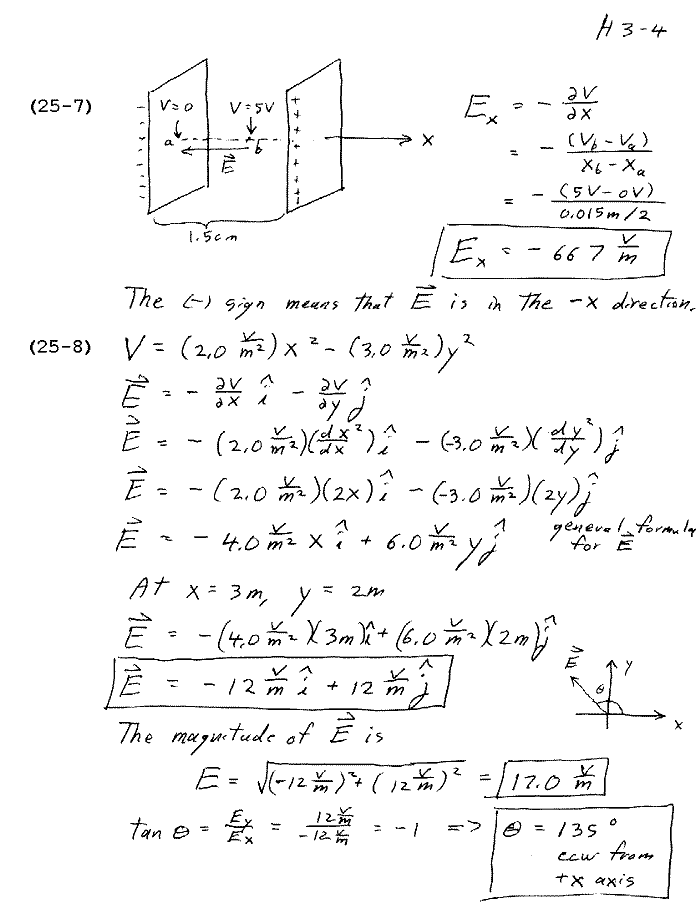 H 3-4
(25-7)
V=0 V=5V
a b x
E⃗
1.5cm
E_x = - ∂V/∂x
= - (V_b - V_a)/(x_b - x_a)
= - (5V - 0V)/(0.015m/2)
E_x = - 667 V/m
The (-) sign means that E⃗ is in the -x direction.
(25-8) V = (2.0 V/m²)x² - (3.0 V/m²)y²
E⃗ = - ∂V/∂x î - ∂V/∂y ĵ
E⃗ = - (2.0 V/m²)(dx²/dx) î - (-3.0 V/m²)(dy²/dy) ĵ
E⃗ = - (2.0 V/m²)(2x) î - (-3.0 V/m²)(2y) ĵ
E⃗ = - 4.0 V/m² x î + 6.0 V/m² y ĵ general formula for E⃗
At x = 3m, y = 2m
E⃗ = -(4.0 V/m²)(3m) î + (6.0 V/m²)(2m) ĵ
E⃗ = - 12 V/m î + 12 V/m ĵ
E⃗ y
θ
x
The magnitude of E⃗ is
E = √((-12 V/m)² + (12 V/m)²) = 17.0 V/m
tan θ = E_y/E_x = 12 V/m / -12 V/m = -1 => θ = 135°
ccw from
+x axis